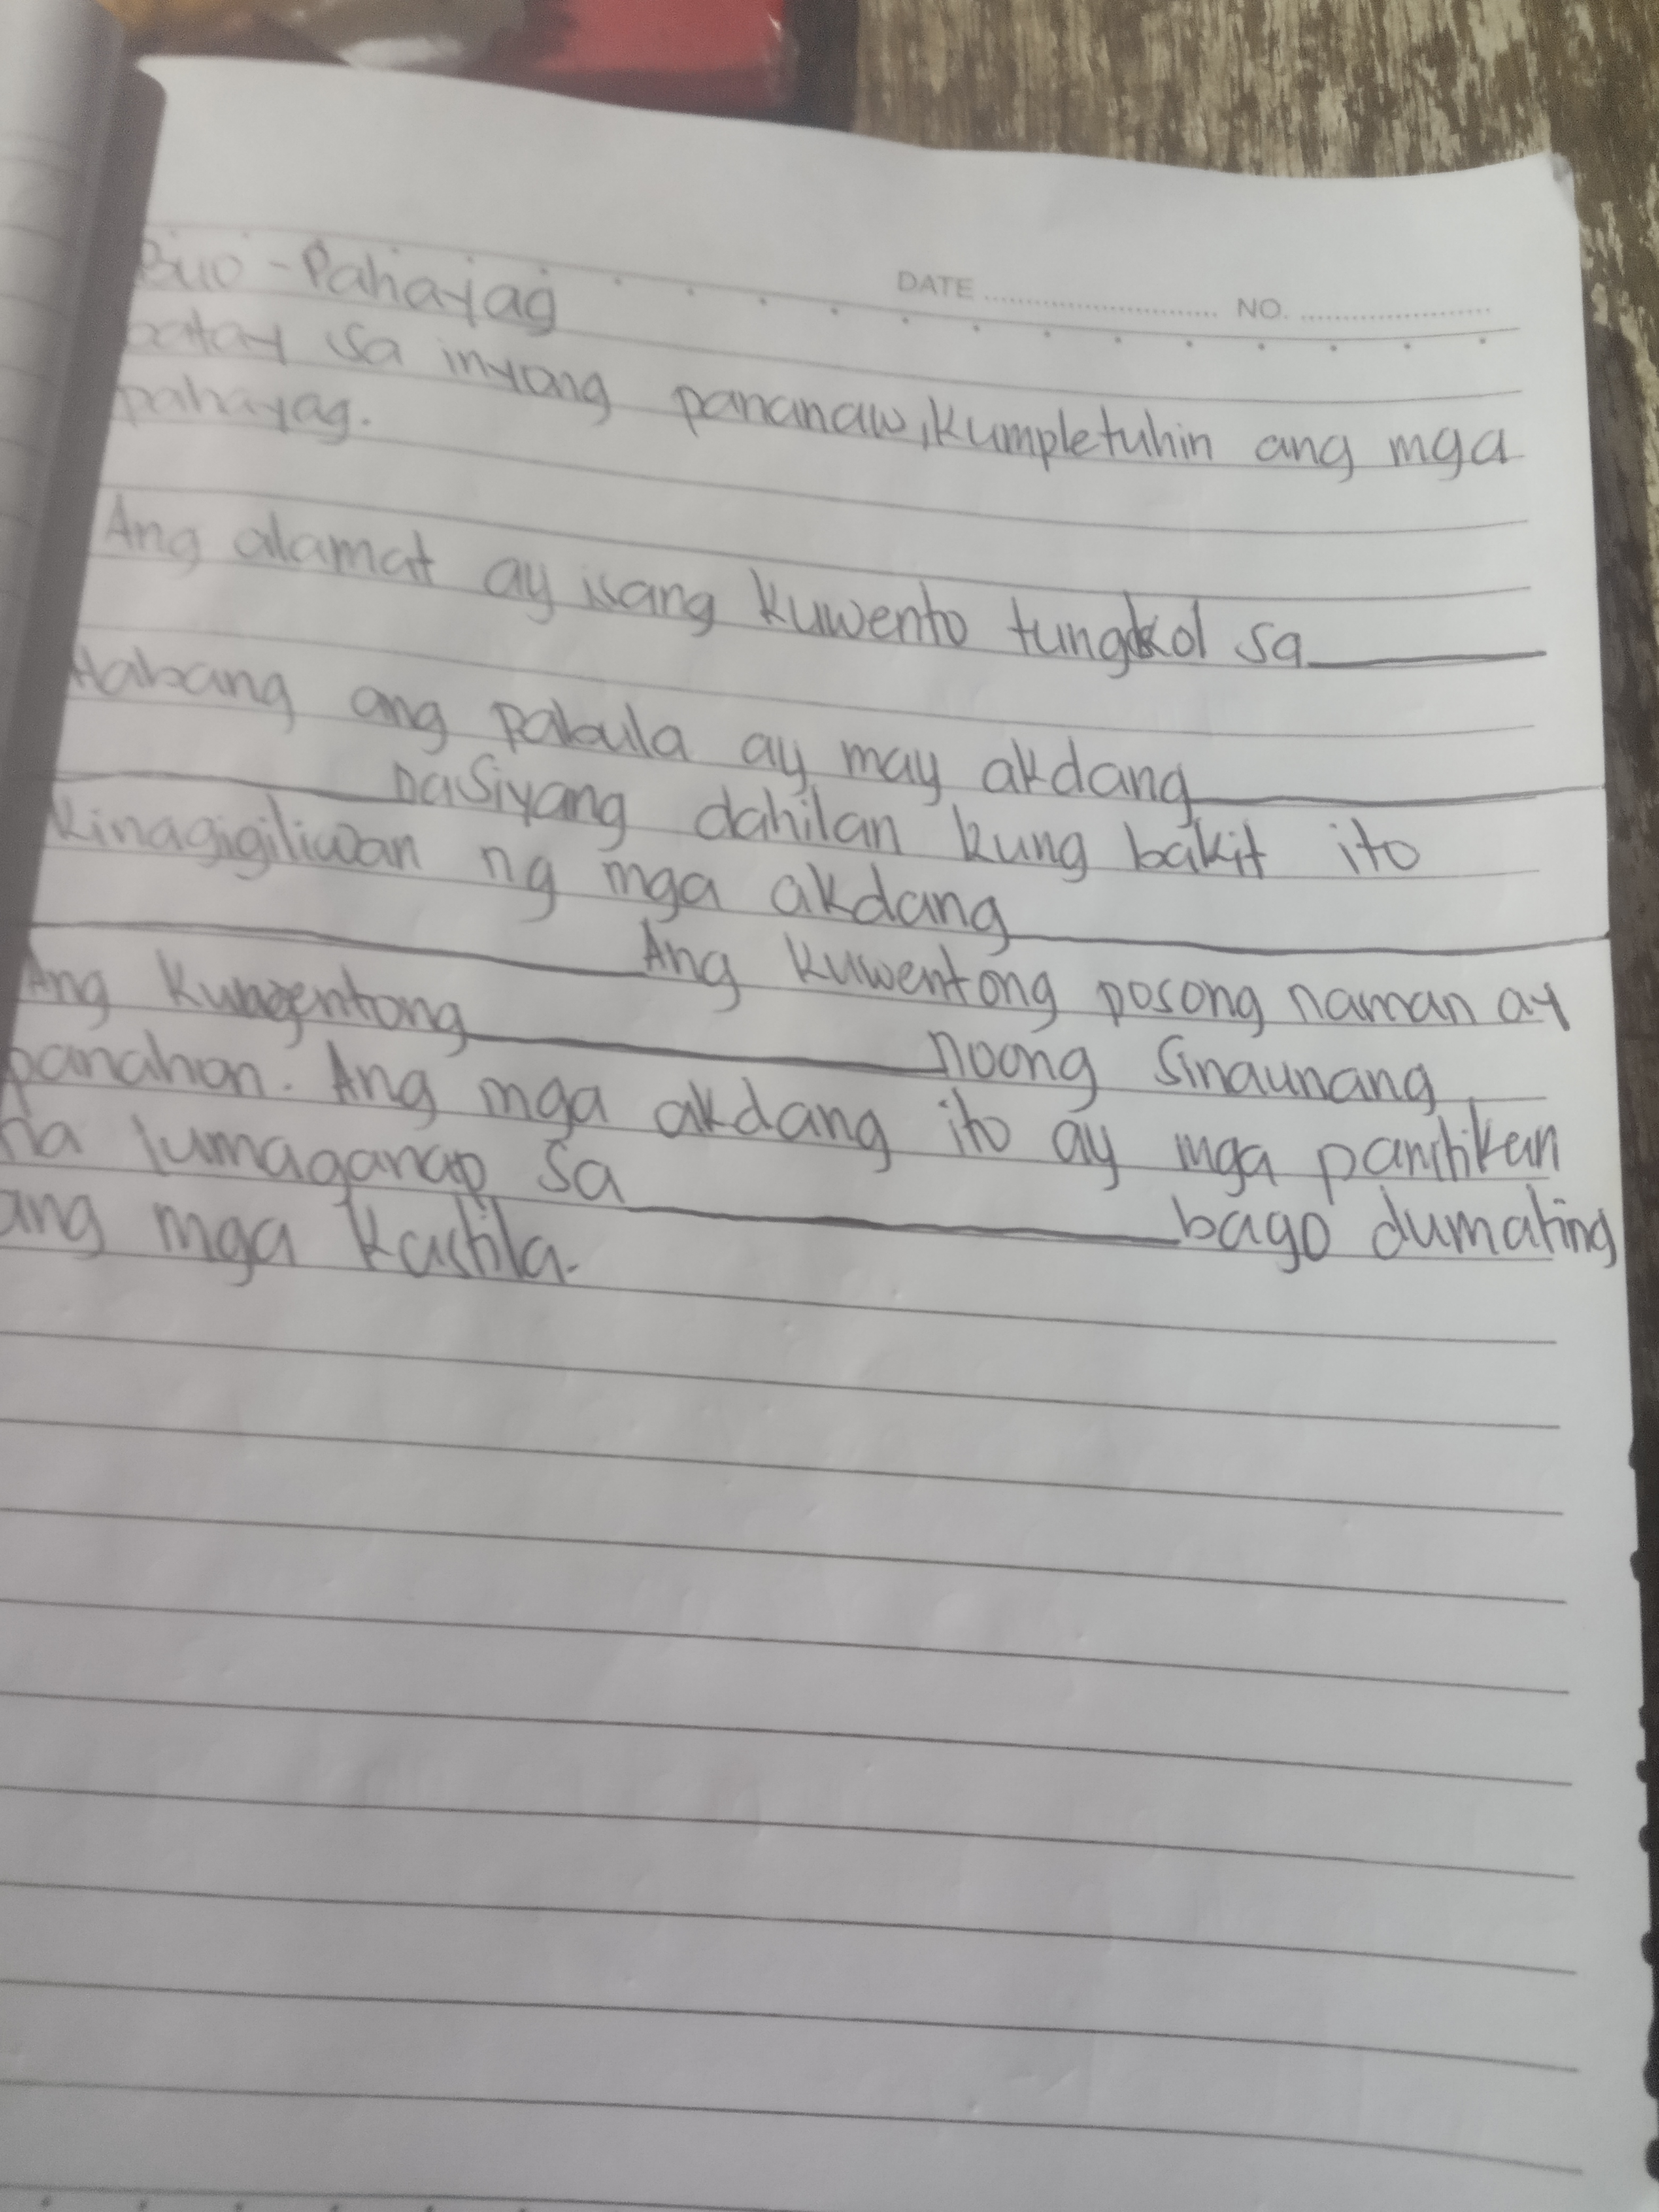 Buo - Pahayag
DATE NO.
batay sa inyong pananaw, kumpletuhin ang mga
pahayag.
Ang alamat ay isang kuwento tungkol sa
Habang ang pabula ay may akdang
na siyang dahilan kung bakit ito
kinagigiliwan ng mga akdang
Ang kuwentong posong naman ay
Ang kuwentong noong sinaunang
panahon. Ang mga akdang ito ay mga panitikan
na lumaganap sa bago dumating
ang mga kastila.